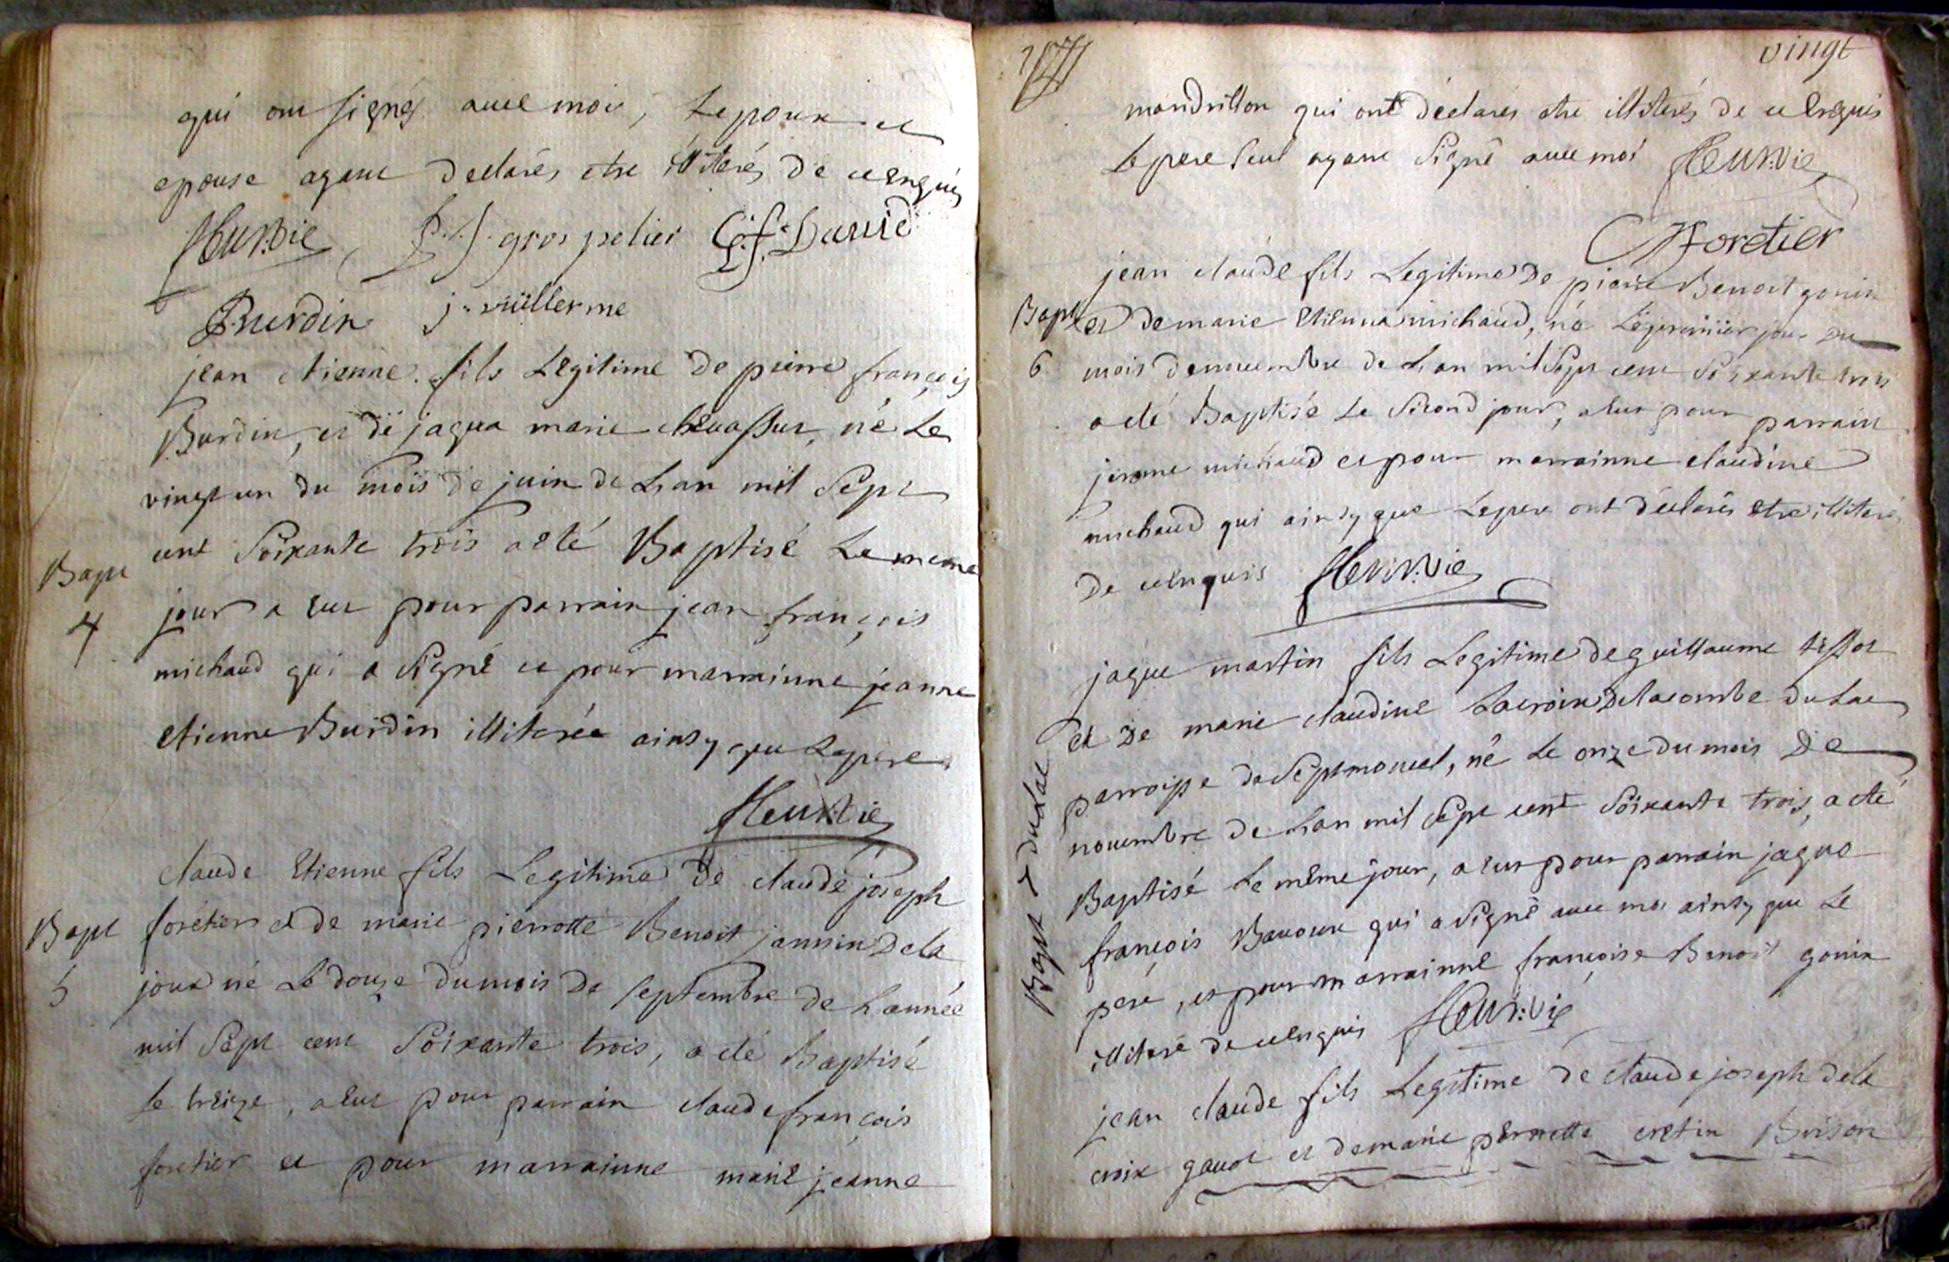 qui ont signés avec moi, Lepoux et
epouse ayant declarés etre illiterés de ce enquis
fleur.vie P.J. grospelier C.f. David
P Burdin j. vüillerme
jean etienne fils Legitime de pierre françois
Burdin, et de jaqua marie chevassus, né Le
vingt un du mois de juin de L'an mil Sept
Bapt
cent Soixante trois a eté Baptisé Le meme
4
jour a eut pour parrain jean françois
michaud qui a signé et pour marrainne jeanne
etienne Burdin illiterée ainsy que Lepere
fleur.vie
claude Etienne fils Legitime de claude joseph
Bapt
foretier et de marie pierrotte Benoit jannin de la
5
joux né Le douze du mois de septembre de L'année
mil Sept cent Soixante trois, a eté Baptisé
le treize, a eut pour parrain claude françois
foretier et pour marrainne marie jeanne
vingt
mandrillon qui ont declarés etre illiterés de ce Enquis
Le pere seul ayant signé avec moi fleur.vie
Cf foretier
jean claude fils Legitime de pierre Benoit gonin
Bapt
et de marie etienna michaud, né Le premier jour du
6
mois de novembre de L'an mil Sept cent Soixante trois
a eté Baptisé Le second jour, a eut pour parrain
jerome michaud et pour marrainne claudine
michaud qui ainsy que Lepere ont déclarés etre illiterés
de ce enquis fleur.vie
jaque martin fils Legitime de guillaume tissot
et De marie claudine Lacroix de la combe du Lac
parroisse de Septmoncel, né Le onze du mois de
novembre de L'an mil Sept cent Soixante trois, a eté
Bapt du Lac
Baptisé Le même jour, a eut pour parrain jaque
françois Bavoux qui a signé avec moi ainsy que Le
pere, et pour marrainne françoise Benoit gonin
illiteré de ce enquis fleur.vie
jean claude fils Legitime de claude joseph de la
croix gavot et de marie pernette cretin Buison